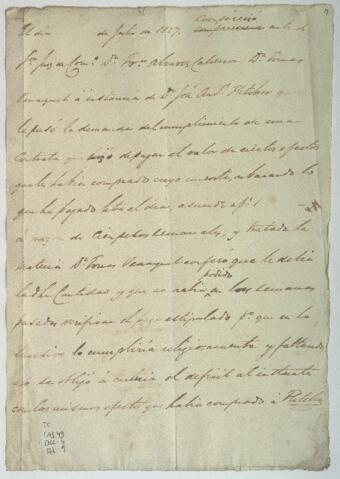 El dia de Julio de 1827, Comparecio
compareciero ante el
Sor Juez de Comº Dn Franº Alvarez Calderon Dn Tomas
Vanaquel á instancia de Dn José Antº Fletcher
le puso la demanda del cumplimiento de una
Contrata que hizo de pagar el valor de ciertos efectos
que le habia comprado cuyo importe, rebajando lo
que ha pagado hasta el dia, asciende á ps
a razon de cien pesos semanales, y tratada la
materia Dn Tomas Vanaquel confesó que le debia
podido
la dha Cantidad y que no habia en las semanas
pasadas verificar el pago estipulado pº que en lo
sucesivo lo cumpliria religiosamente y faltando
se obligó á cubrir el deficit al instante
con los mismos efectos que habia comprado á Fletcher
TC
CAJ.49
DOC.6
Fd 9